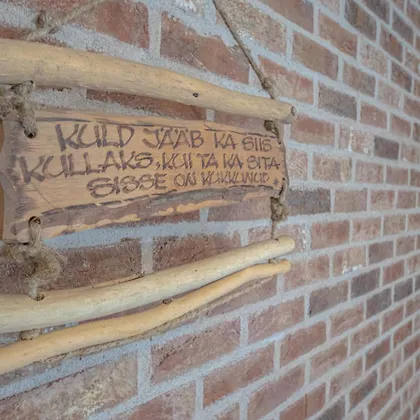 KULD JÄÄB KA SIIS
KULLAKS, KUI TA KA SITA
SISSE ON KUKKUNUD